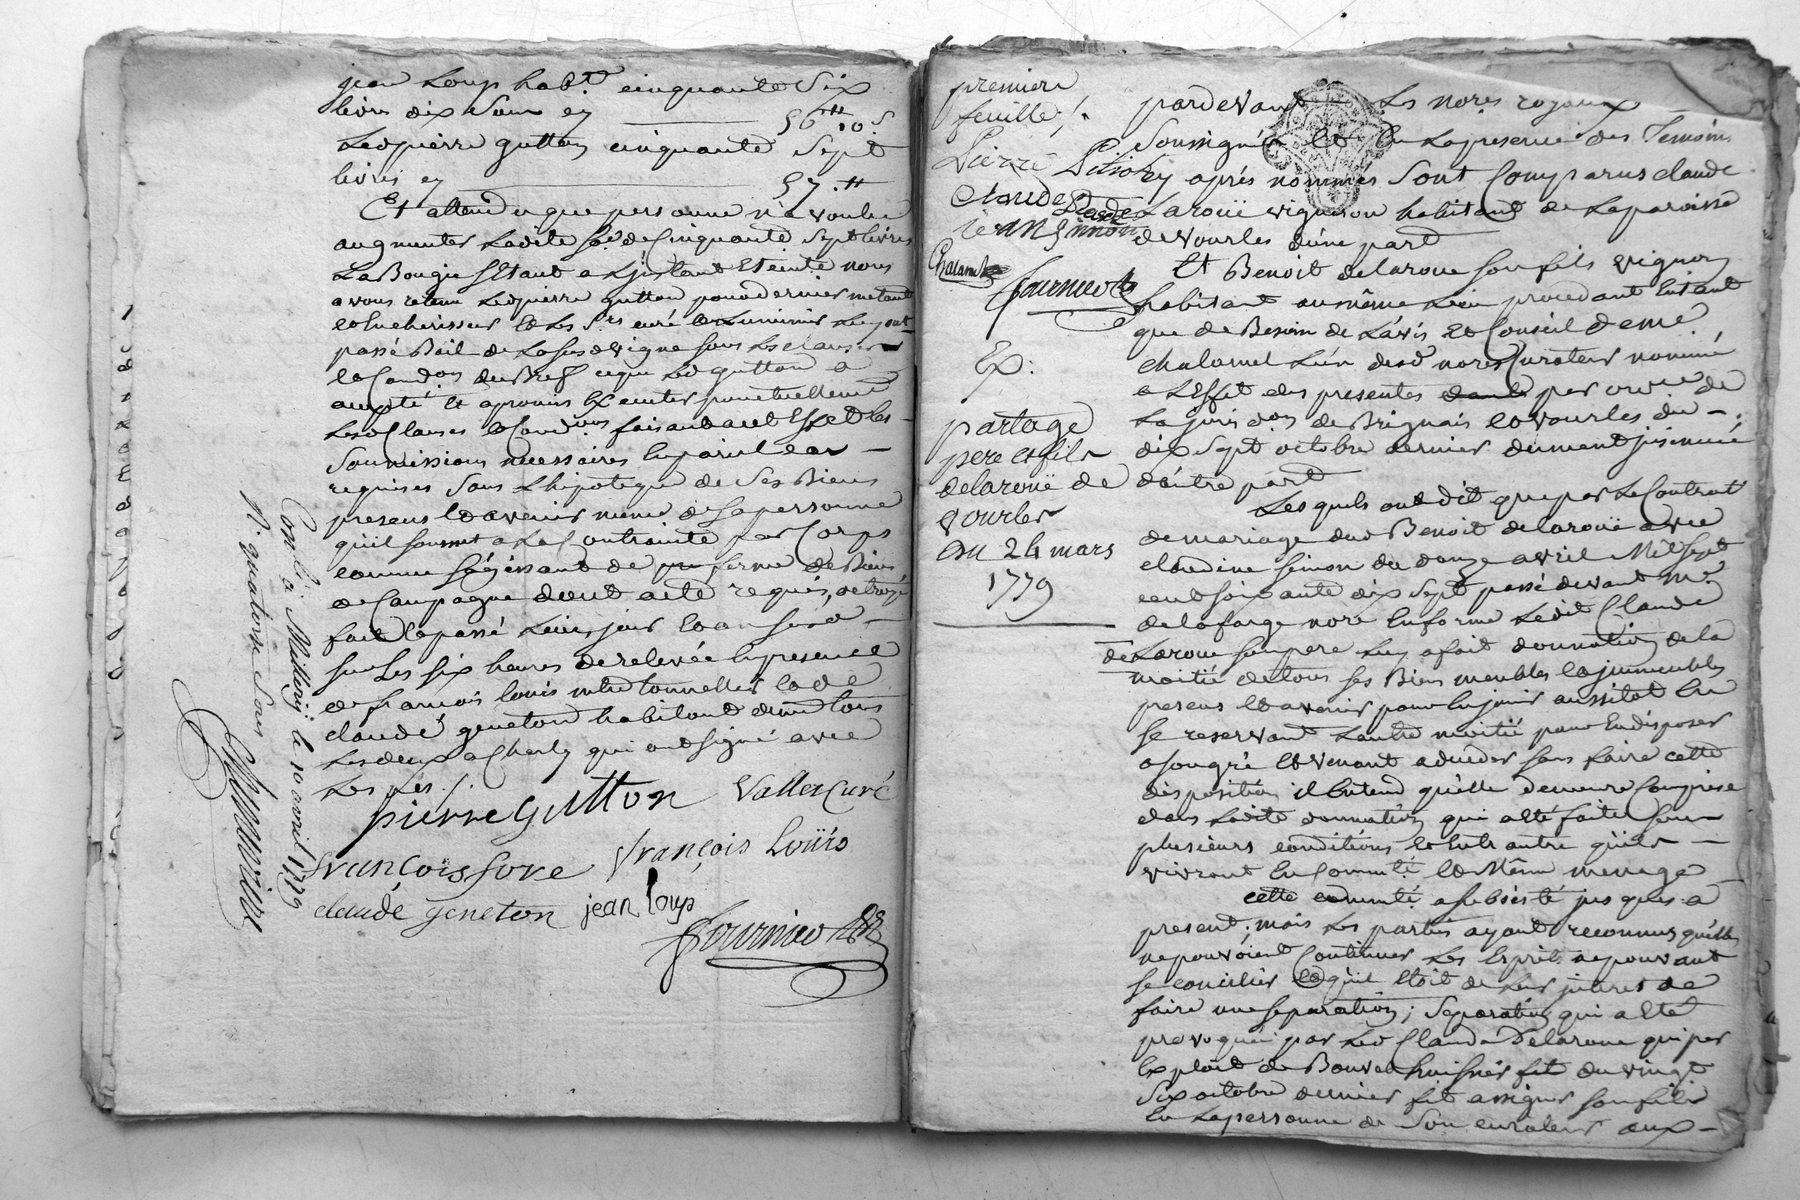 jean Loup habt. cinquante Six
livres dix Sous cy 56tt 10.s
Led pierre gutton cinquante Sept
livres cy 57.tt
Et attendu que personne n'a voulu
augmenter Ladite So.e de Cinquante Sept livres
La Bougie S'Etant a L'instant Eteinte nous
avons retenu Led pierre gutton pour dernier metant
et Encherisseur Et Les Srs curé et Luy ont
passé Bail de vigne Sous Les Clauses
Et Condons du Bref ce que Led gutton a
accepté Et a promis Executer ponctuellement
Lesd Clauses et Condions faisant a cet Effet Les
Soumissions necessaires
requises Sous L'hipoteque de Ses Biens
presens Et avenir meme de Sa personne
qu'il Soumet a La Contrainte par Corps
comme S'agissant de ferme de Biens
de Campagne dont acte requis, octroyé
fait Et passé Lesd jour Et an
Sur Les Six heures de relevée En presence
de françois Louis me tonnellier Et de
claude geneton habitant
Les deux a Charly qui ont Signé avec
Les ptes ./.
pierre Gutton Vallet Curé
François fore François Loüis
claude geneton jean Loup
fournier
Conlé à Millery le 10 avril 1779
R. quatorze Sous
premiere
feuille ./.
Claude
jean Simon
Chalamel
fournier
Ex:
partage
pere et fils
delaroüe de
Vourles
du 24 mars
1779
pardevant Les nores royaux
Soussignés Et En La presence des Temoins
après nommés Sont Comparus claude
De Laroüe vigneron habitant de La paroisse
de vourles d'une part
Et Benoit delaroue Son fils vigneron
habitant au même Lieu procedant En tant
que de Besoin de L'avis Et Conseil de me
chalamel L'un desd nores Curateur nommé
a L'Effet des presentes par ordce de
La juridon de Brignais et Vourles du
dix Sept octobre dernier duement insinué
d'autre part
Lesquels ont dit que par Le Contrat
de mariage dud Benoit delaroüe avec
claudine Simon du douze avril Mil Sept
cent Soixante dix Sept passé devant me
delafarge nore En forme Ledit Claude
de Laroue Son pere Luy a fait donnation de la
moitié de tous Ses Biens meubles Et immeubles
presens Et avenir pour En jouir aussitot En
Se reservant L'autre moitié pour En disposer
a Son gré Et venant a deceder Sans faire cette
disposition il Entend qu'elle demeure Comprise
dans Ladite donnation qui a été faite Sous
plusieurs conditions Et Entre autre qu'ils
vivront En Commté. Et Même menage
cette commté a Subsisté jusques a
present; mais Les parties ayant reconnus qu'elles
ne pouvoient Continuer Les Esprits ne pouvant
Se concilier Et qu'il Etoit de Leur interet de
faire une Separation; Separation qui a Eté
provoquée par Led Claude Delaroue qui par
Exploit de Bouvet huissier fit du vingt
Six octobre dernier fit assigner Son fils
En La personne de Son curateur aux